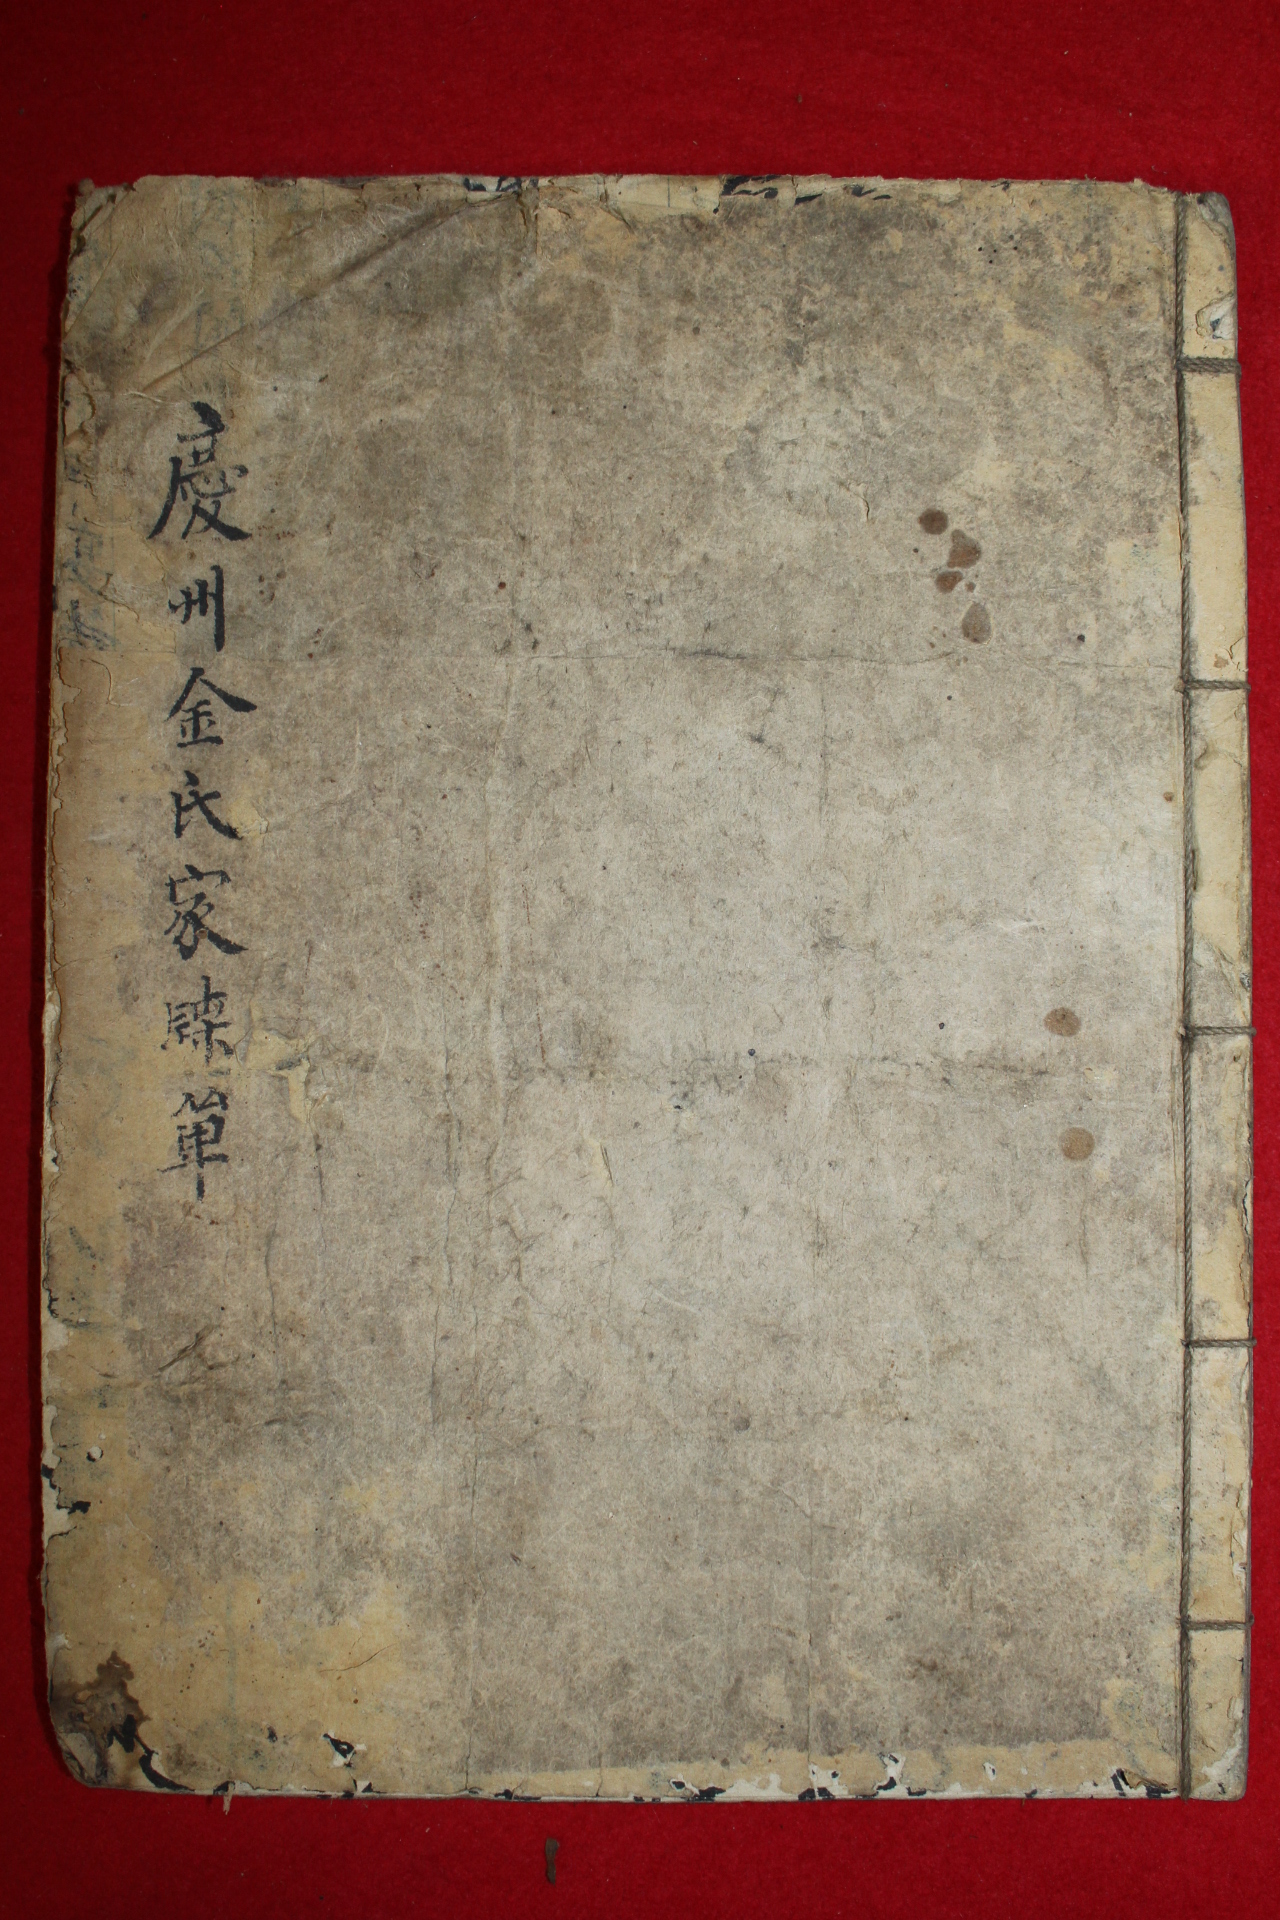 慶州金氏家牒單